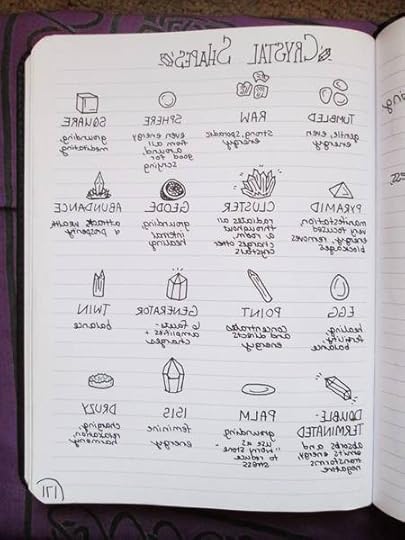 CRYSTAL SHAPES
TUMBLED
gentle, even
energy
RAW
strong, sporadic
energy
SPHERE
even energy
from all
around,
good for
scrying
SQUARE
grounding,
meditating
PYRAMID
manifestation,
very focused
energy, removes
blockages
CLUSTER
radiates all
throughout
a room,
charges other
crystals
GEODE
grounding,
internal
healing
ABUNDANCE
attracts wealth
&
EGG
healing,
fertility,
balance
POINT
concentrates
and directs
energy
GENERATOR
6 faces-
amplifies +
charges
TWIN
balance
DOUBLE-
TERMINATED
absorbs and
emits energy,
transforms
negative
PALM
grounding
use as
"worry stone"
to reduce
stress
ISIS
feminine
energy
DRUZY
charging,
relaxation,
harmony
171